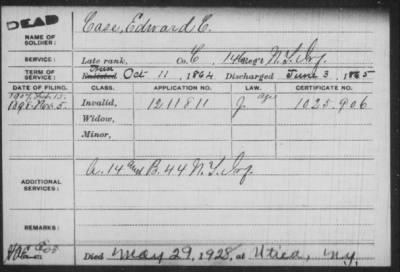 DEAD
NAME OF SOLDIER: Case, Edward C.
SERVICE: Late rank, Co. C, 146 Reg't N.Y. Inf.
TERM OF SERVICE: Enlisted Oct 11, 1864 Discharged June 3, 1865
DATE OF FILING. CLASS. APPLICATION NO. LAW. CERTIFICATE NO.
1907, Feb. 15.
1898, Nov. 5. Invalid, 1211811 J. 1025.906
Widow,
Minor,
ADDITIONAL SERVICES: A. 14 and B. 44 N.Y. Inf.
REMARKS:
Died May 29, 1928, at Utica, N.Y.